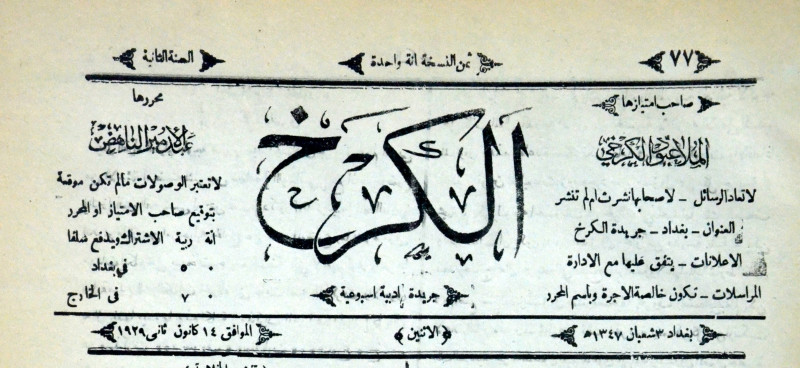 ٧٧
ثمن النسخة انة واحدة
السنة الثانية
صاحب امتيازها
الملا عبود الكرخي
لا تعاد الرسائل ـ لاصحابها نشرت ام لم تنشر
العنوان ـ بغداد ـ جريدة الكرخ
الاعلانات ـ يتفق عليها مع الادارة
المراسلات ـ تكون خالصة الاجرة وباسم المحرر
الكرخ
جريدة ادبية اسبوعية
محررها
عبد الامير الناهض
لا تعتبر الوصولات مالم تكن موقعة
بتوقيع صاحب الامتياز او المحرر
انة ربية الاشتراك ويدفع سلفا
٠ ٥ في بغداد
٠ ٧ في الخارج
بغداد ٣ شعبان ١٣٤٧ هـ
﴿الاثنين﴾
الموافق ١٤ كانون ثانى ١٩٢٩